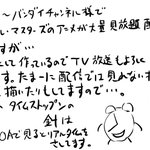 ～バンダイチャンネル様で
ル・マスターズのアニメが大量見放題配
すが…
して作っているのでTV放送しように
す。たまーに配信で1コ見かないす
描いたりしてますので…。
タイムストップンの
針は
OAで見るとリアルタイムを
さしてます。